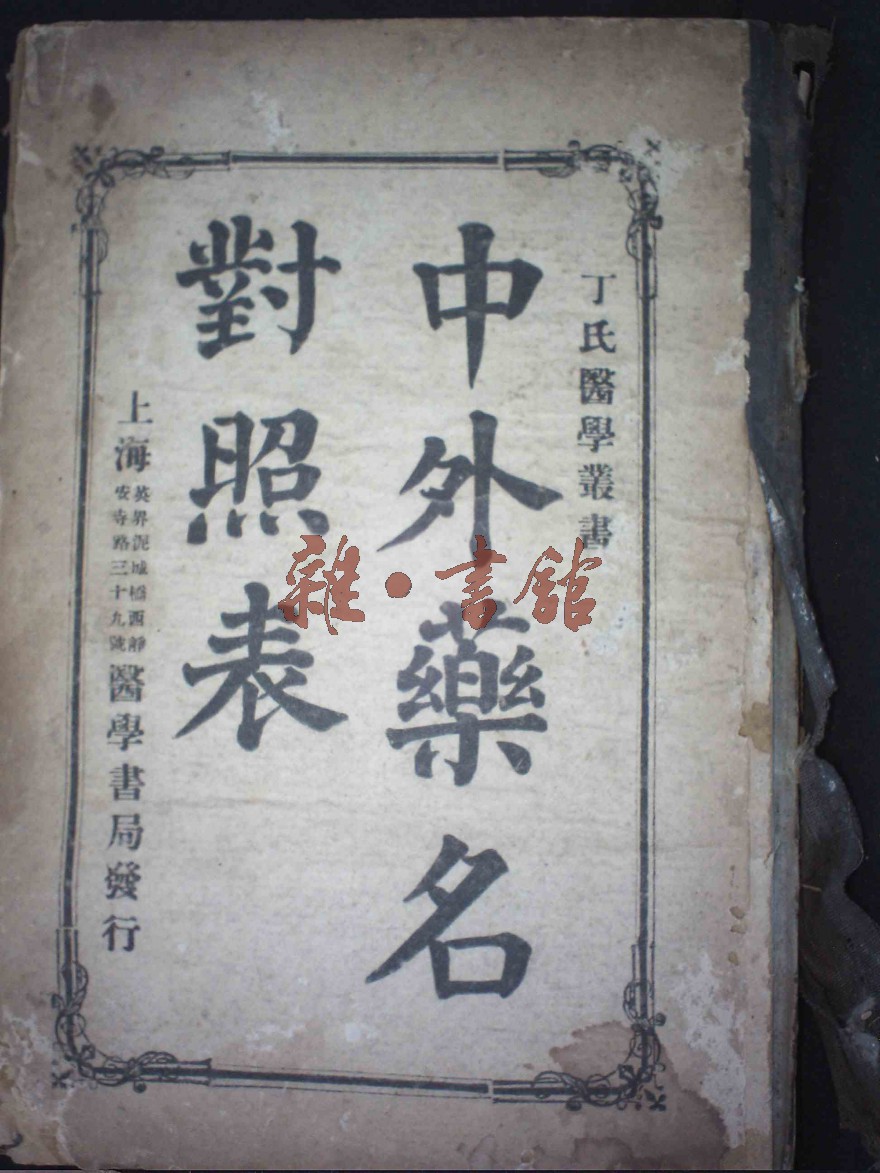 丁氏醫學叢書
中外藥名
對照表
上海
英界泥城橋西靜
安寺路三十九號
醫學書局發行
雜·書館